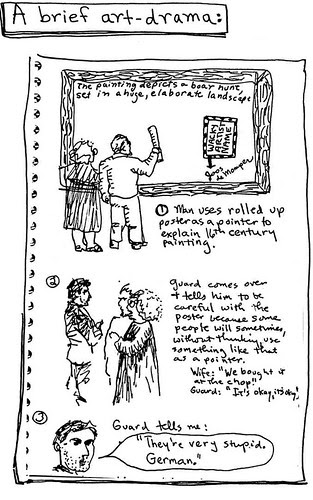 A brief art-drama:
The painting depicts a boar hunt,
set in a huge, elaborate landscape
WACKY
ARTIST
NAME
Joos
de Momper
① Man uses rolled up
poster as a pointer to
explain 16th century
painting.
②
guard comes over
+ tells him to be
careful with the
poster because some
people will sometimes,
without thinking, use
something like that
as a pointer.
Wife: "We bought it
at the shop!"
Guard: "It's okay, it's okay."
③
Guard tells me:
"They're very stupid.
German."